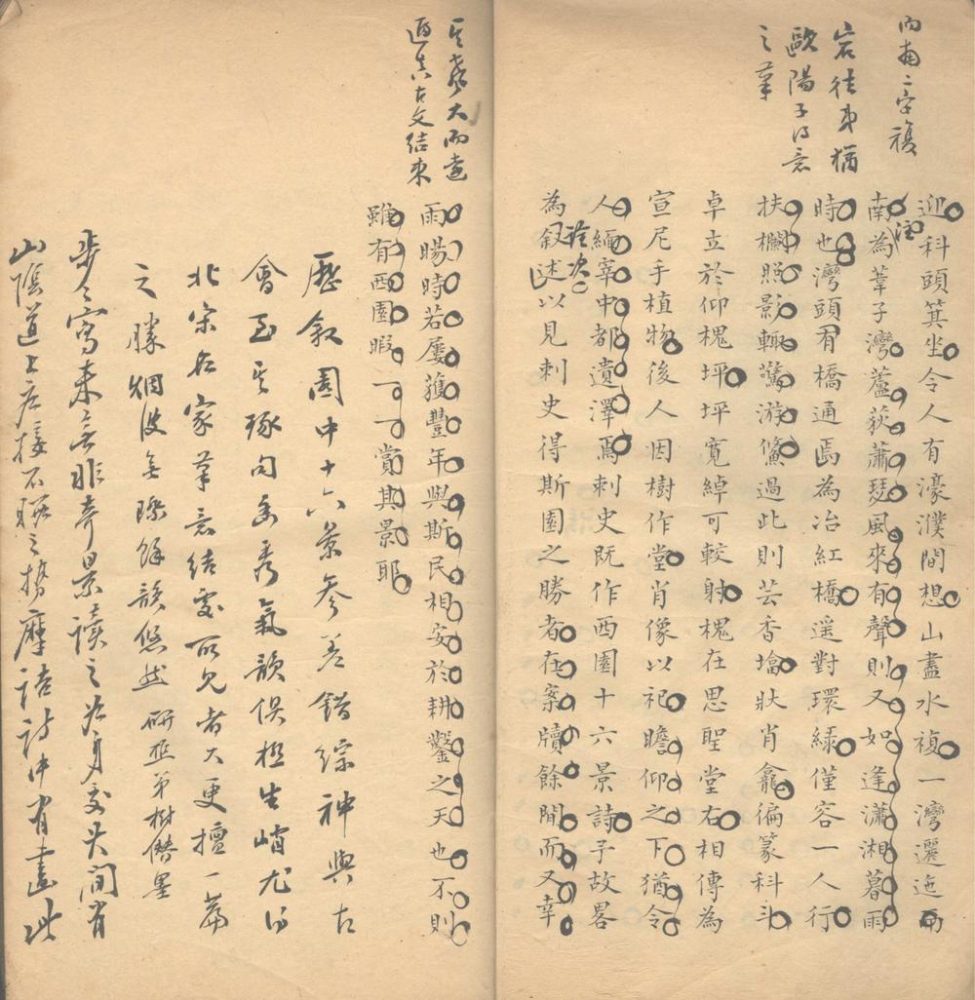 內南二字複
岩徍弟猶
歐陽子得意
之筆
迎科頭箕坐令人有濠濮間想山盡水複一灣邐迤而
南為葦子灣蘆荻蕭瑟風來有聲則又如逢瀟湘暮雨
時也灣頭有橋通焉為冶紅橋遥對環綠僅容一人行
扶欄照影輒驚游鯈過此則芸香壇狀肖龕徧篆科斗
卓立於仰槐坪坪寛綽可較射槐在思聖堂右相傳為
宣尼手植物後人因樹作堂肖像以祀瞻仰之下猶令
人緬宰中都遺澤焉刺史既作西園十六景詩子故畧
為叙述以見刺史得斯園之勝者在案牘餘閒而又幸
大而遠
古文結束
雨暘時若屢獲豐年與斯民相安於耕鑿之天也不則
雖有西園暇一一賞其景耶
歷叙園中十六景參差錯綜神與古
會至其琢句幽秀氣韻俱極生峭尤得
北宋名家筆意結處所見者大更擅一篇
之勝烟波無際餘韻悠然 研弟樹僭墨
步步寫来無非奇景讀之
山陰道上應接不暇之摩詰詩中有畫此